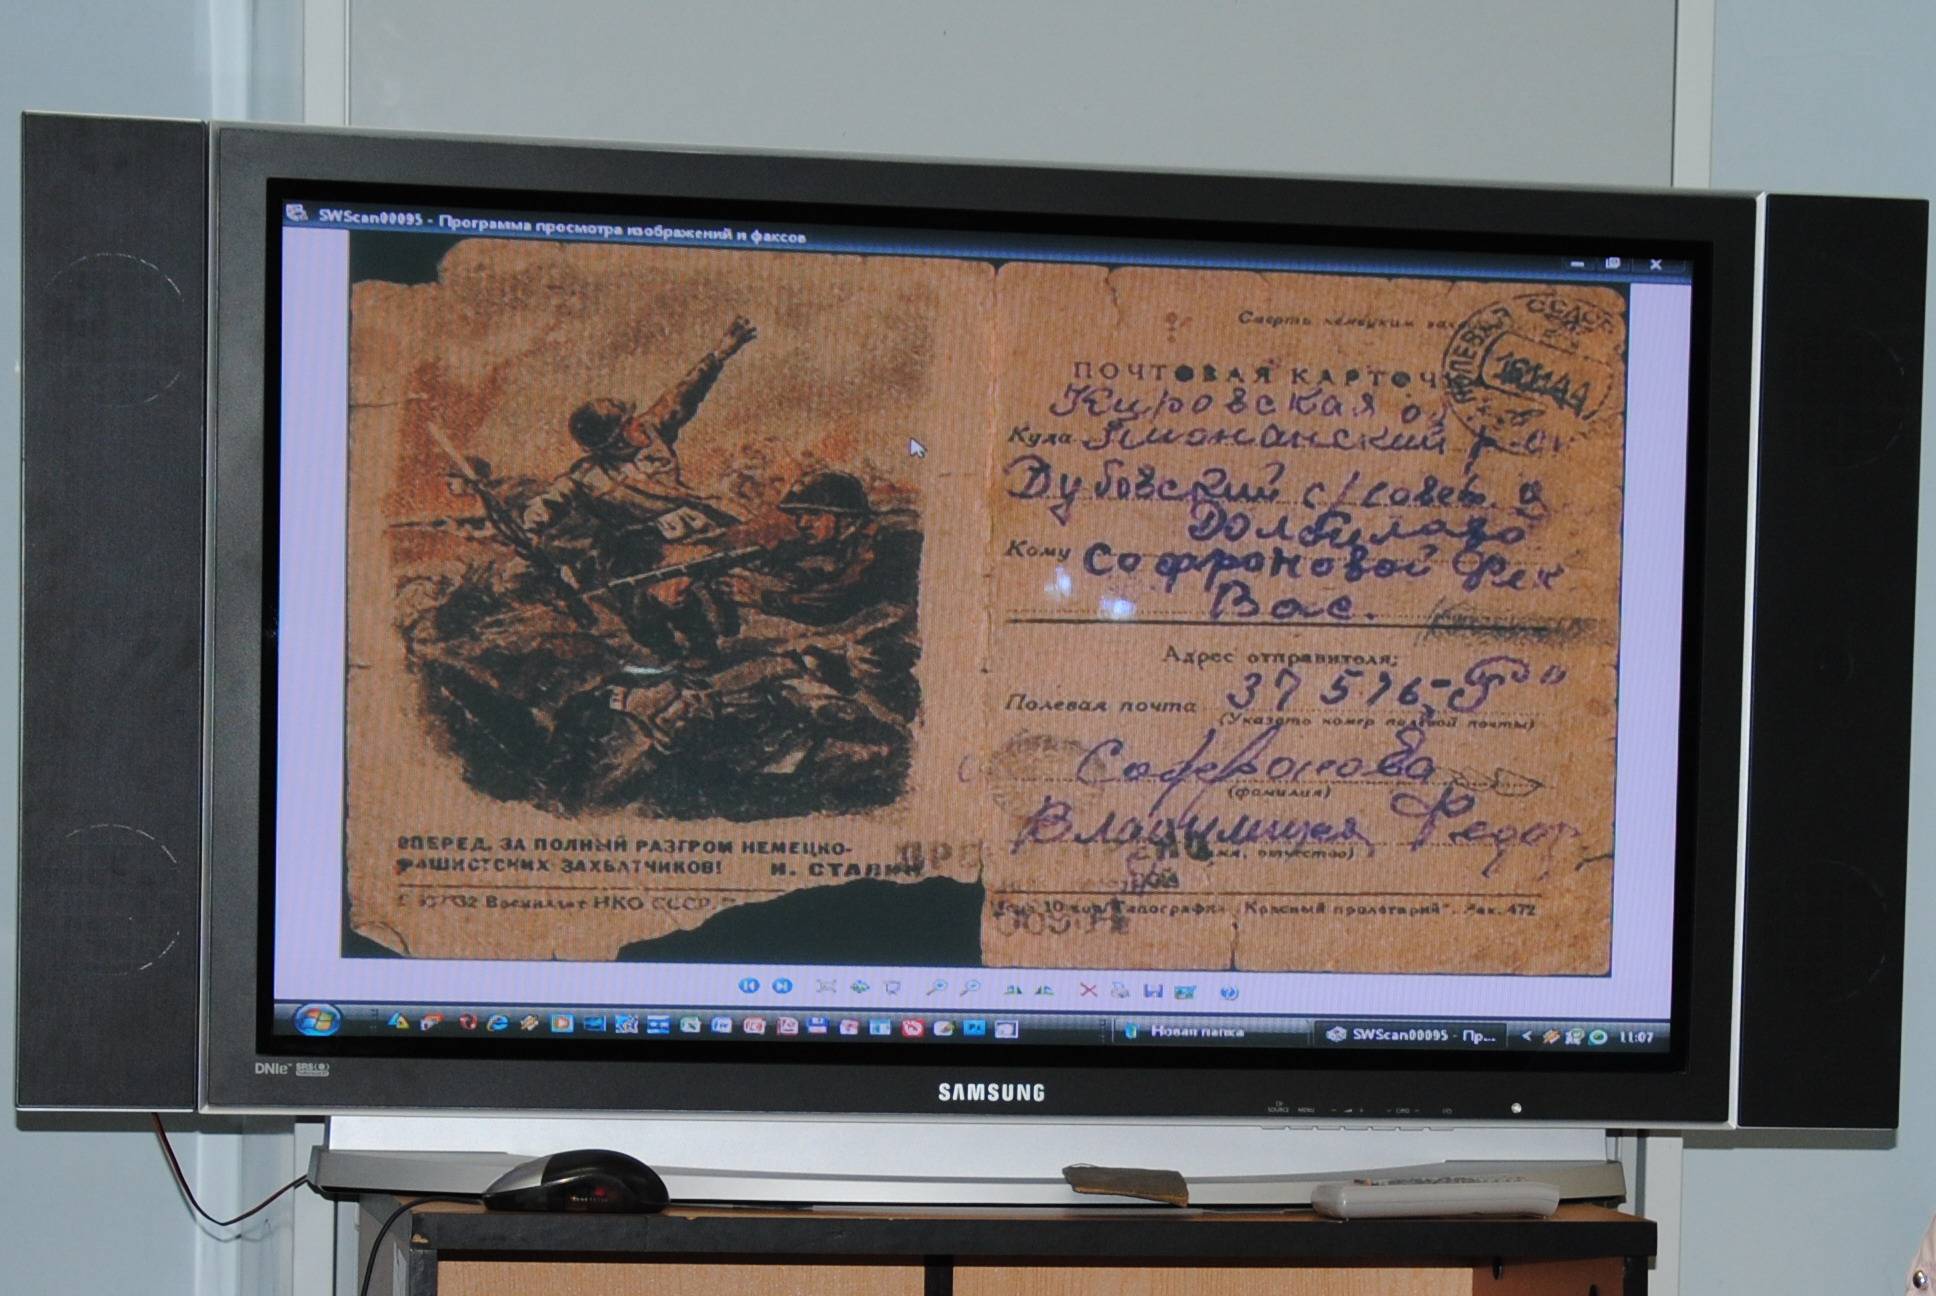 SWScan00095 - Программа просмотра изображений и факсов
Смерть немецким
ПОЧТОВАЯ КАРТОЧ
СССР
16 11 44
Кировская о
Куда
Дубовский с/совет. д
Долбилово
Кому Софроновой Фек
Вас.
Адрес отправителя:
Полевая почта 37576-
(Указать номер полевой почты)
Софронова
(фамилия)
Владимира Федор
(имя, отчество)
ВПЕРЕД, ЗА ПОЛНЫЙ РАЗГРОМ НЕМЕЦКО-
ФАШИСТСКИХ ЗАХВАТЧИКОВ! И. СТАЛИН
Воениздат НКО СССР
Цена 10 коп. Типография „Красный пролетарий". Зак. 472
Новая папка
SWScan00095 - Пр...
11:07
DNIe SRS
SAMSUNG
SOURCE MENU